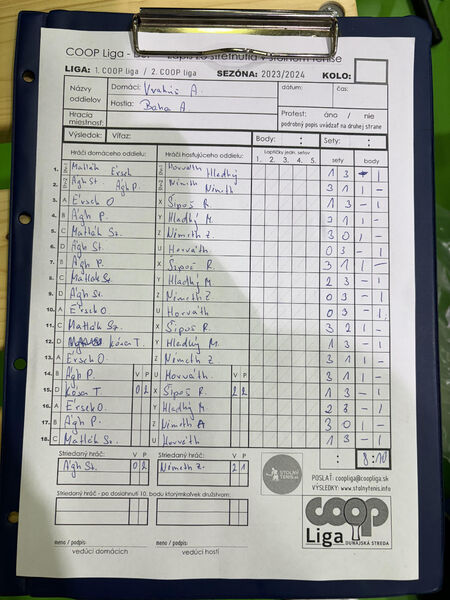 COOP Liga - Zápis zo stretnutia v stolnom tenise
LIGA: 1. COOP liga / 2. COOP liga SEZÓNA: 2023/2024 KOLO:
Názvy oddielov Domáci: Vrakúň A. dátum: čas:
Hostia: Baka A Protest: áno / nie
Hracia miestnosť: podrobný popis uvádzať na druhej strane
Výsledok: Víťaz: Body: : Sety: :
Hráči domáceho oddielu: Hráči hosťujúceho oddielu: Loptičky jedn. setov sety body
1. 2. 3. 4. 5.
1. Matlák Érsch Horváth Hladký 1 3 - 1
2. Ágh St. Ágh P. Németh Németh 3 1 1 -
3. A Érsch O X Šipoš R. 3 1 1 -
4. B Ágh P. Y Hladký M. 3 1 1 -
5. C Matlák St. Z Németh Z. 3 0 1 -
6. D Ágh St. U Horváth 0 3 - 1
7. B Ágh P. X Šipoš R. 3 1 1 -
8. C Matlák St. Y Hladký M. 2 3 - 1
9. D Ágh St. Z Németh Z 0 3 - 1
10. A Érsch O U Horváth 0 3 - 1
11. C Matlák St. X Šipoš R. 3 2 1 -
12. D Kósa T. Y Hladký M. 1 3 - 1
13. A Érsch O. Z Németh Z 3 1 1 -
14. B Ágh P. V P U Horváth. V P 3 1 1 -
15. D Kósa T. 0 2 X Šipoš R. 2 2 1 3 - 1
16. A Érsch O. Y Hladký M. 2 3 - 1
17. B Ágh P. Z Németh 3 0 1 -
18. C Matlák St. U Horváth 1 3 - 1
Striedaný hráč: V P Striedaný hráč: V P : 8:10
Ágh St. 0 2 Németh Z. 2 1
STOLNÝ TENIS
POSLAŤ: coopliga@coopliga.sk
VÝSLEDKY: www.stolnytenis.info
Striedaný hráč - po dosiahnutí 10. bodu ktorýmkoľvek družstvom:
coop
Liga DUNAJSKÁ STREDA
meno / podpis: meno / podpis:
vedúci domácich vedúci hostí